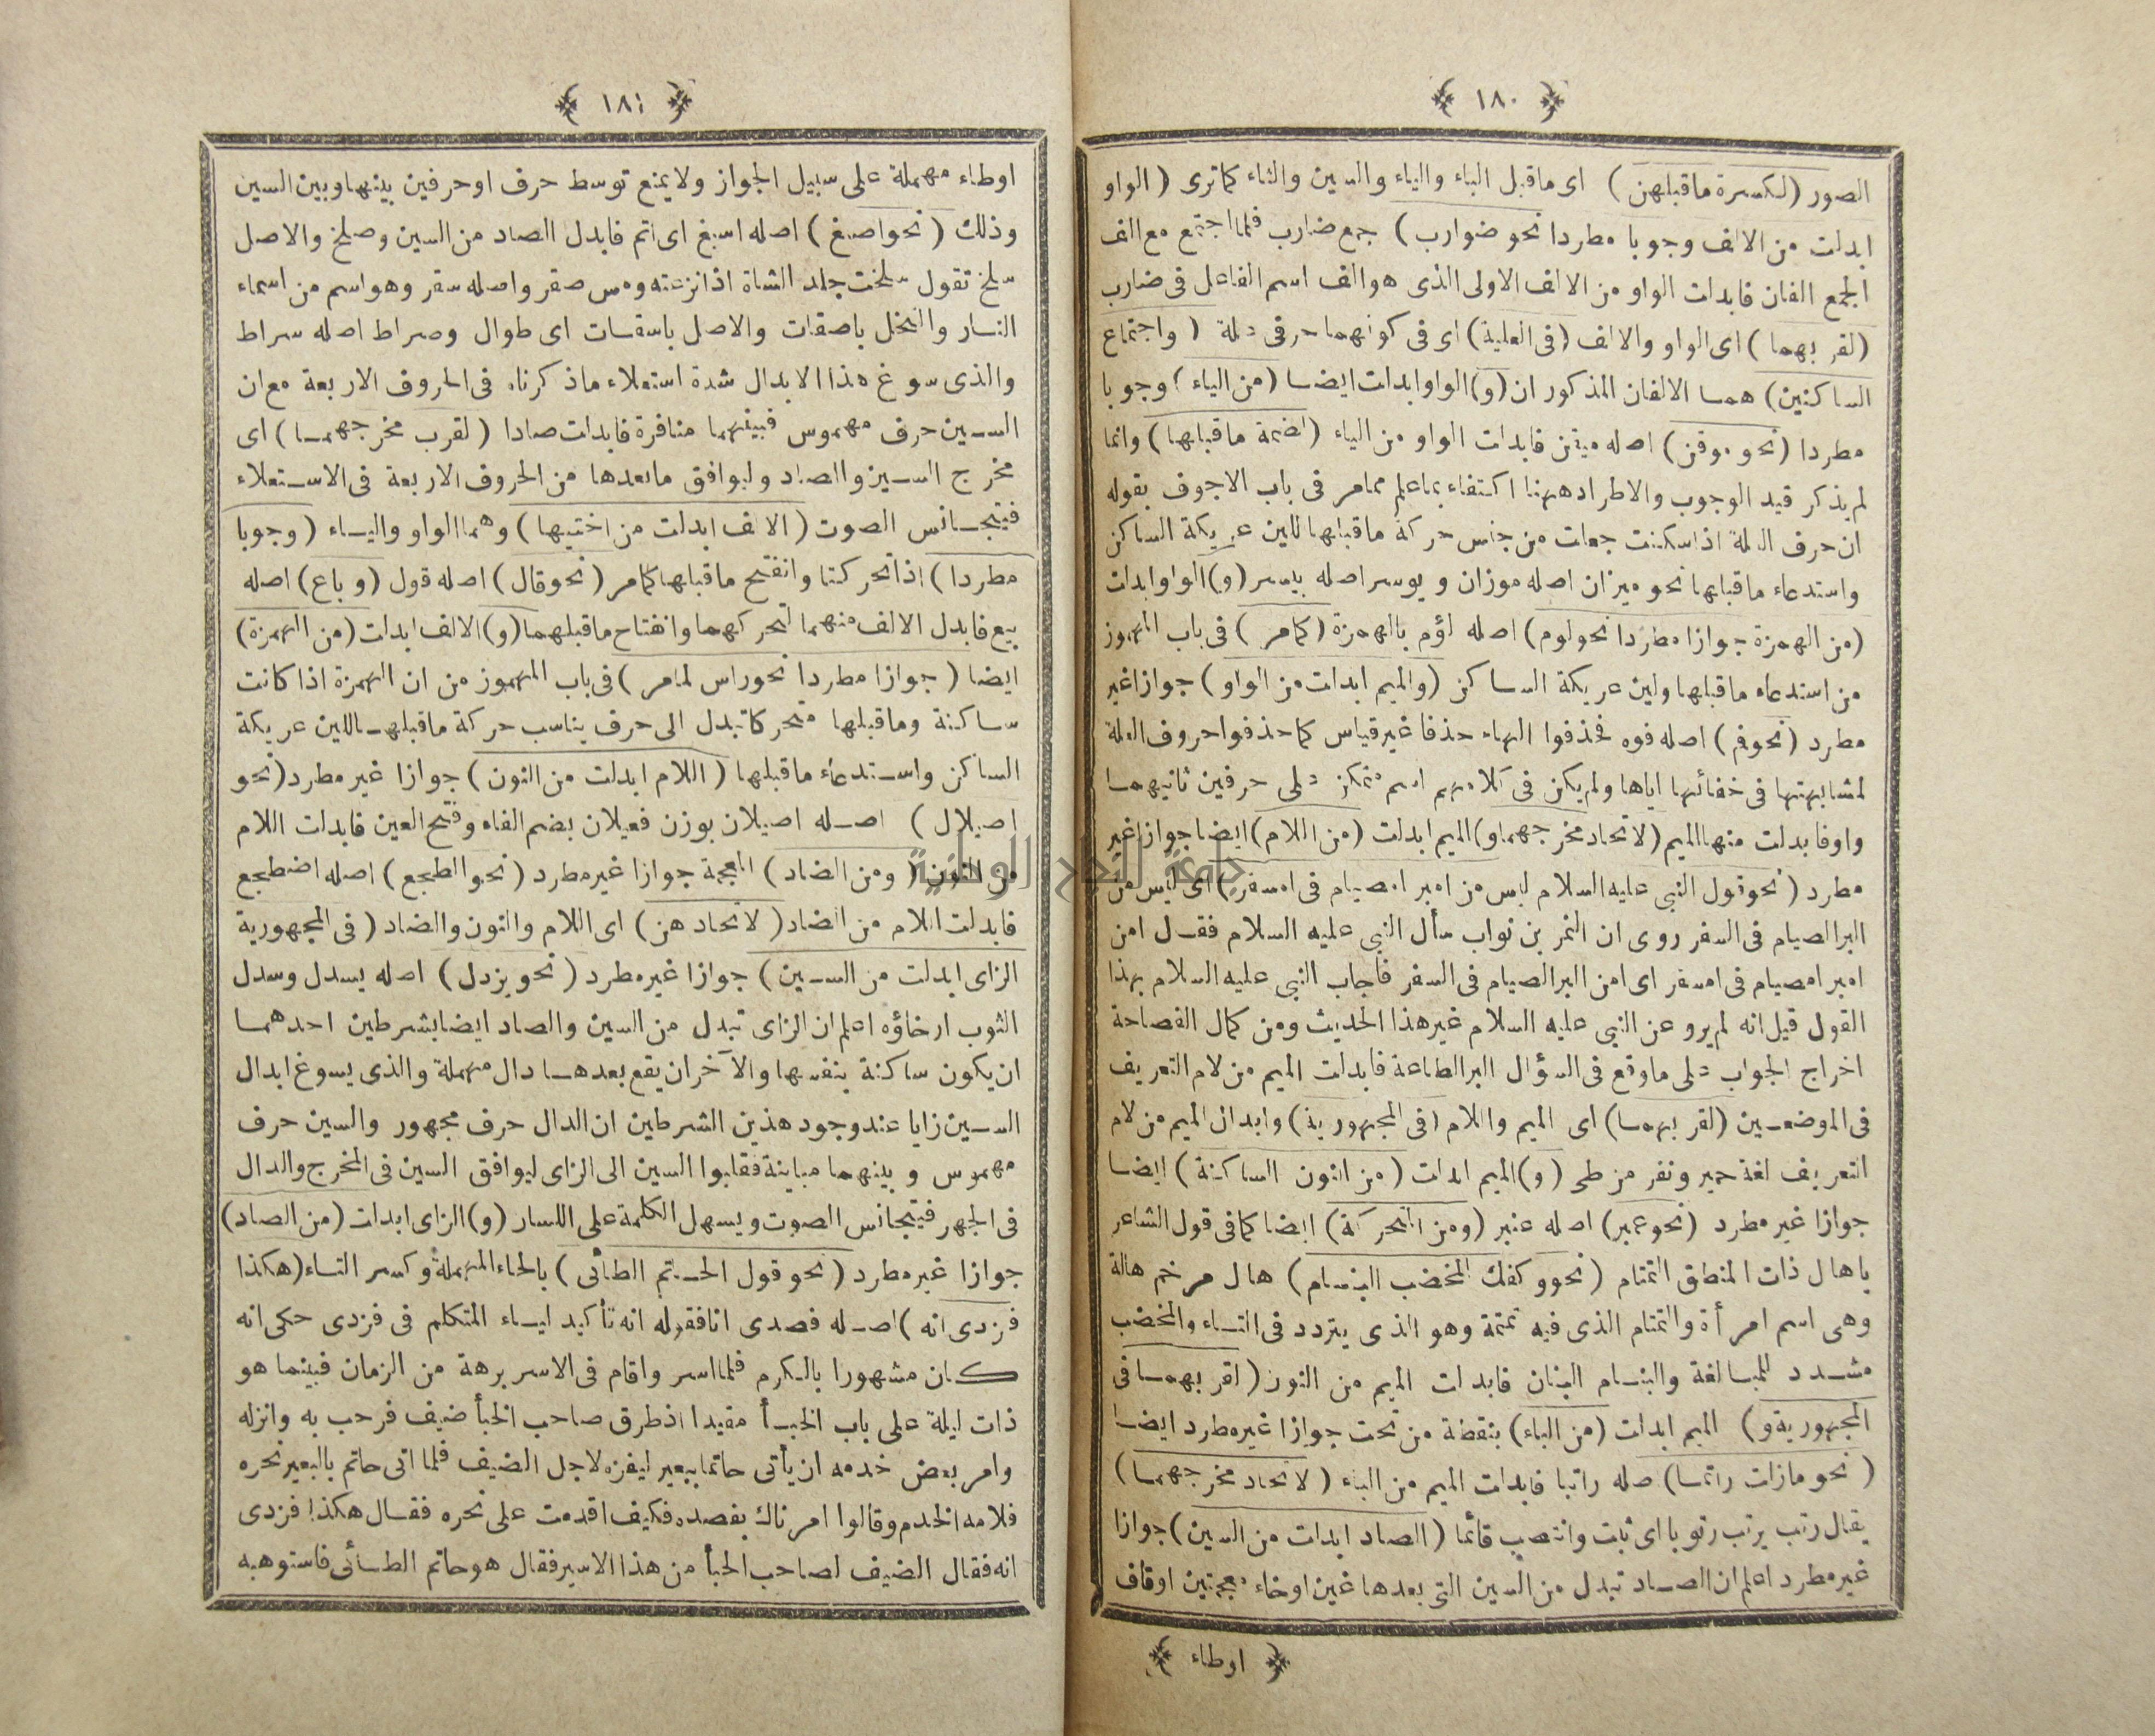 ﴿ ١٨٠ ﴾
الصور (لكسرة ماقبلهن) اى ماقبل الباء والياء والسين والثاء كماترى (الواو
ابدلت من الالف وجوبا مطردا نحو ضوارب) جمع ضارب فلما اجتمع مع الف
الجمع الفان فابدلت الواو من الالف الاولى الذى هو الف اسم الفاعل فى ضارب
(لقربهما) اى الواو والالف (فى العلية) اى فى كونهما حرفى علة (واجتماع
الساكنين) هما الالفان المذكوران (و) الواو ابدلت ايضا (من الياء) وجوبا
مطردا (نحو موقن) اصله ميقن فابدلت الواو من الياء (لضمة ماقبلها) وانما
لم يذكر قيد الوجوب والاطراد ههنا اكتفاء بماعلم ممامر فى باب الاجوف بقوله
ان حرف العلة اذا سكنت جعلت من جنس حركة ماقبلها للين عريكة الساكن
واستدعاء ماقبلها نحو ميزان اصله موزان ويوسر اصله ييسر (و) الواو ابدلت
(من الهمزة جوازا مطردا نحو لوم) اصله لؤم بالهمزة (كمامر) فى باب المهموز
من استدعاء ماقبلها ولين عريكة الساكن (والميم ابدلت من الواو) جوازا غير
مطرد (نحو فم) اصله فوه فحذفوا الهاء حذفا غير قياس كما حذفوا حروف العلة
لمشابهتها فى خفائها اياها ولم يكن فى كلامهم اسم متمكن على حرفين ثانيهما
واو فابدلت منها الميم (لاتحاد مخرجهما و) الميم ابدلت (من اللام) ايضا جوازا غير
مطرد (نحو قول النبى عليه السلام ليس من امبر امصيام فى امسفر) اى ليس من
البر الصيام فى السفر روى ان النمر بن تواب سأل النبى عليه السلام فقال امن
امبر امصيام فى امسفر اى امن البر الصيام فى السفر فاجاب النبى عليه السلام بهذا
القول قيل انه لم يرو عن النبى عليه السلام غير هذا الحديث ومن كمال الفصاحة
اخراج الجواب على ماوقع فى السؤال البر الطاعة فابدلت الميم من لام التعريف
فى الموضعين (لقربهما) اى الميم واللام (فى المجهورية) وابدال الميم من لام
التعريف لغة حمير ونفر من طى (و) الميم ابدلت (من النون الساكنة) ايضا
جوازا غير مطرد (نحو عمبر) اصله عنبر (ومن المتحركة) ايضا كما فى قول الشاعر
ياهال ذات المنطق التمتام (نحو وكفك المخضب البنام) هال مرخم هالة
وهى اسم امرأة والتمتام الذى فيه تمتمة وهو الذى يتردد فى التاء والمخضب
مشدد للمبالغة والبنام البنان فابدلت الميم من النون (لقربهما فى
المجهورية و) الميم ابدلت (من الباء) بنقطة من تحت جوازا غير مطرد ايضا
(نحو مازلت راتما) صله راتبا فابدلت الميم من الباء (لاتحاد مخرجهما)
يقال رتب يرتب رتوبا اى ثبت وانتصب قائما (الصاد ابدلت من السين) جوازا
غير مطرد اعلم ان الصاد تبدل من السين التى بعدها غين اوخاء معجمتين اوقاف
﴿ اوطاء ﴾
﴿ ١٨١ ﴾
اوطاء مهملة على سبيل الجواز ولا يمنع توسط حرف اوحرفين بينها وبين السين
وذلك (نحو اصبغ) اصله اسبغ اى اتم فابدل الصاد من السين وصلخ والاصل
سلخ تقول سلخت جلد الشاة اذا نزعته ومس صقر واصله سقر وهو اسم من اسماء
النار والنخل باصقات والاصل باسقات اى طوال وصراط اصله سراط
والذى سوغ هذا الابدال شدة استعلاء ماذكرناه فى الحروف الاربعة مع ان
السين حرف مهموس فبينهما منافرة فابدلت صادا (لقرب مخرجهما) اى
مخرج السين والصاد وليوافق مابعدها من الحروف الاربعة فى الاستعلاء
فيتجانس الصوت (الالف ابدلت من اختيها) وهما الواو والياء (وجوبا
مطردا) اذا تحركتا وانفتح ماقبلها كمامر (نحو قال) اصله قول (وباع) اصله
بيع فابدل الالف منهما لتحركهما وانفتاح ماقبلهما (و) الالف ابدلت (من الهمزة)
ايضا (جوازا مطردا نحو راس لمامر) فى باب المهموز من ان الهمزة اذا كانت
ساكنة وماقبلها متحركا تبدل الى حرف يناسب حركة ماقبلها للين عريكة
الساكن واستدعاء ماقبلها (اللام ابدلت من النون) جوازا غير مطرد (نحو
اصيلال) اصله اصيلان بوزن فعيلان بضم الفاء وفتح العين فابدلت اللام
من النون (ومن الضاد) المعجمة جوازا غير مطرد (نحو الطجع) اصله اضطجع
فابدلت اللام من الضاد (لاتحادهن) اى اللام والنون والضاد (فى المجهورية
الزاى ابدلت من السين) جوازا غير مطرد (نحو يزدل) اصله يسدل وسدل
الثوب ارخاؤه اعلم ان الزاى تبدل من السين والصاد ايضا بشرطين احدهما
ان يكون ساكنة بنفسها والآخر ان يقع بعدها دال مهملة والذى يسوغ ابدال
السين زايا عند وجود هذين الشرطين ان الدال حرف مجهور والسين حرف
مهموس وبينهما مباينة فقلبوا السين الى الزاى ليوافق السين فى المخرج والدال
فى الجهر فيتجانس الصوت ويسهل الكلمة على اللسان (و) الزاى ابدلت (من الصاد)
جوازا غير مطرد (نحو قول الحاتم الطائى) بالحاء المهملة وكسر التاء (هكذا
فزدى انه) اصله فصدى انا فقوله انه تأكيد لياء المتكلم فى فزدى حكى انه
كان مشهورا بالكرم فلما اسر واقام فى الاسر برهة من الزمان فبينما هو
ذات ليلة على باب الخبأ مقيدا اذ طرق صاحب الخبأ ضيف فرحب به وانزله
وامر بعض خدمه ان يأتى حاتما ببعير ليفزده لاجل الضيف فلما اتى حاتم بالبعير نحره
فلامه الخدم وقالوا امرناك بفصده فكيف اقدمت على نحره فقال هكذا فزدى
انه فقال الضيف لصاحب الخبأ من هذا الاسير فقال هو حاتم الطائى فاستوهبه